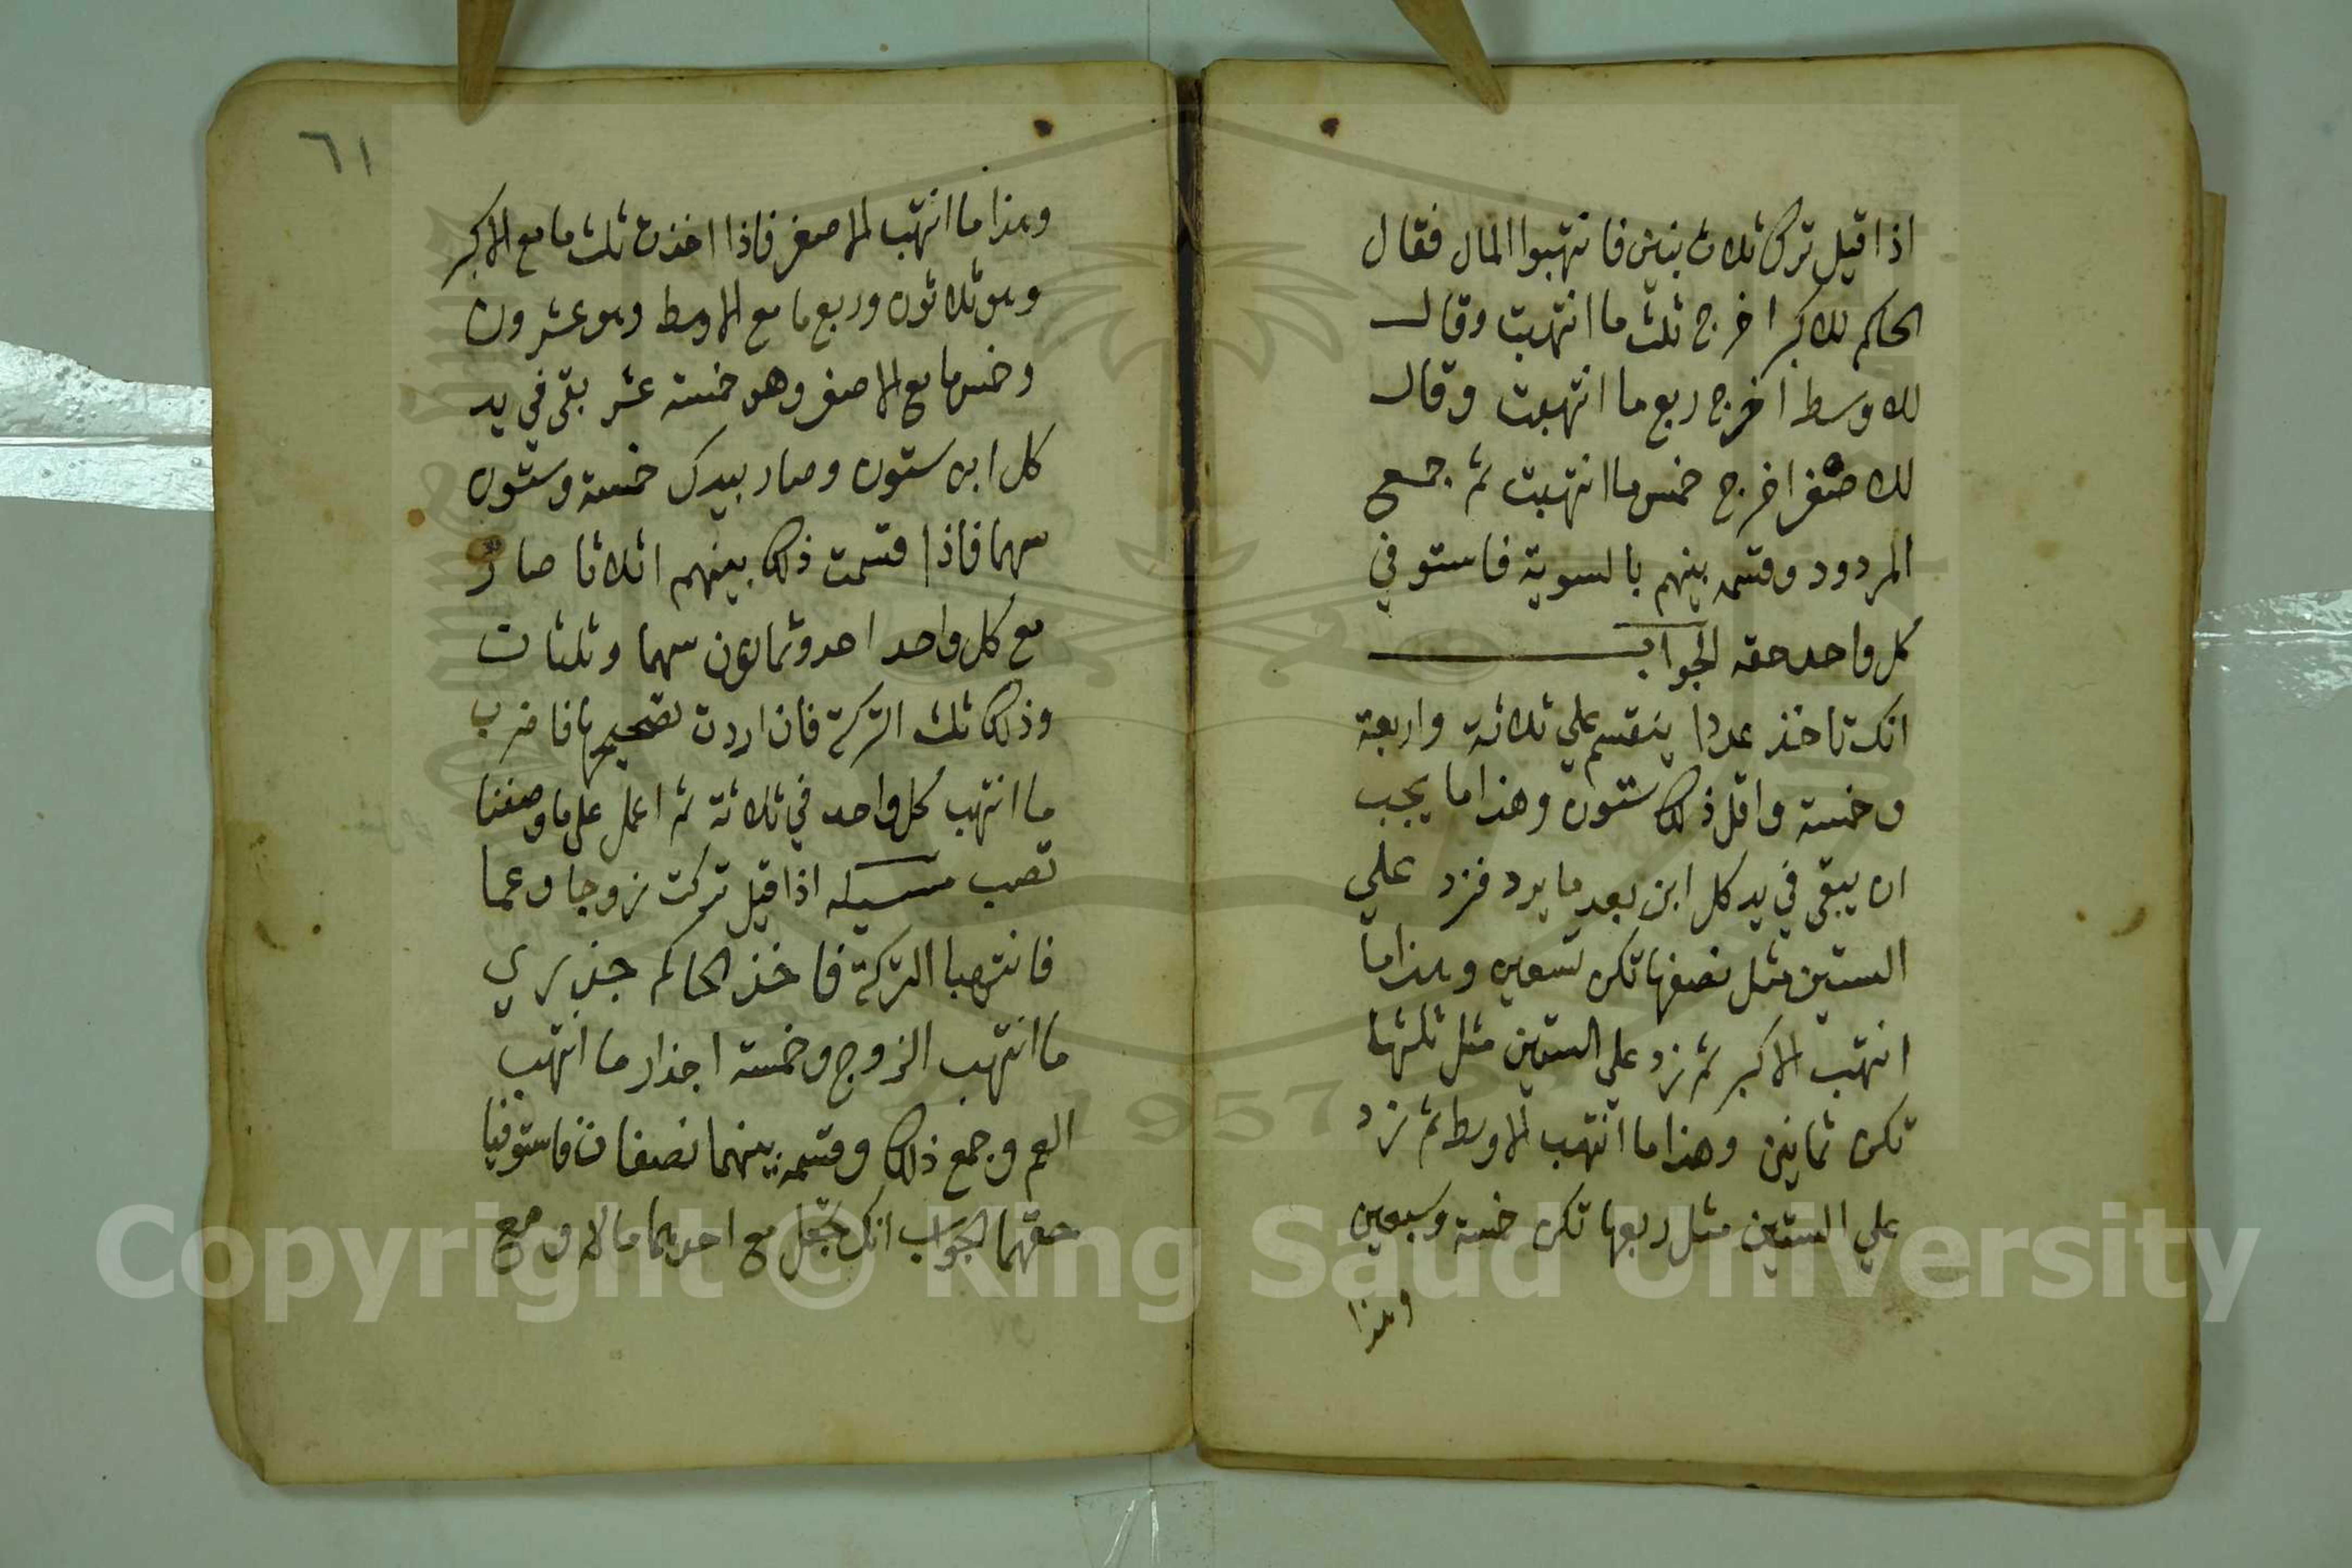 اذا قيل ترك ثلاث بنين فانتهبوا المال فقال
الحاكم للاكبر اخرج ثلث ما انتهبت وقال
للاوسط اخرج ربع ما انتهبت وقال
للاصغر اخرج خمس ما انتهبت ثم جمع
المردود وقسمه بينهم بالسوية فاستوفي
كل واحد حقه الجواب
انك تاخذ عددا ينقسم علي ثلاثة واربعة
وخمسة واقل ذلك ستون وهذا ما يجب
ان يبقى في يد كل ابن بعد ما يرد فزد علي
الستين مثل نصفها تكن تسعين وهذا ما
انتهب الاكبر ثم زد علي الستين مثل ثلثها
تكن ثمانين وهذا ما انتهب الاوسط ثم زد
علي الستين مثل ربعها تكن خمسة وسبعين
وهذا
٦١
وهذا ما انتهب الاصغر فاذا اخذت ثلث ما مع الاكبر
وهو ثلاثون وربع ما مع الاوسط وهو عشرون
وخمس ما مع الاصغر وهو خمسة عشر بقى في يد
كل ابن ستون وصار بيدك خمسة وستون
سهما فاذا قسمت ذلك بينهم اثلاثا صار
مع كل واحد احد وثمانون سهما وثلثان
وذلك ثلث التركة فان اردت تصحيحها فاضرب
ما انتهب كل واحد في ثلاثة ثم اعمل على ما وصفنا
تصب مسيله اذا قيل تركت زوجا وعما
فانتهبا التركة فاخذ الحاكم جذري
ما انتهب الزوج وخمسة اجذار ما انتهب
العم وجمع ذلك وقسمه بينهما نصفان فاستوفيا
حقهما الجواب انك تجعل مع احدهما مالا ومع
Copyright © King Saud University
1957